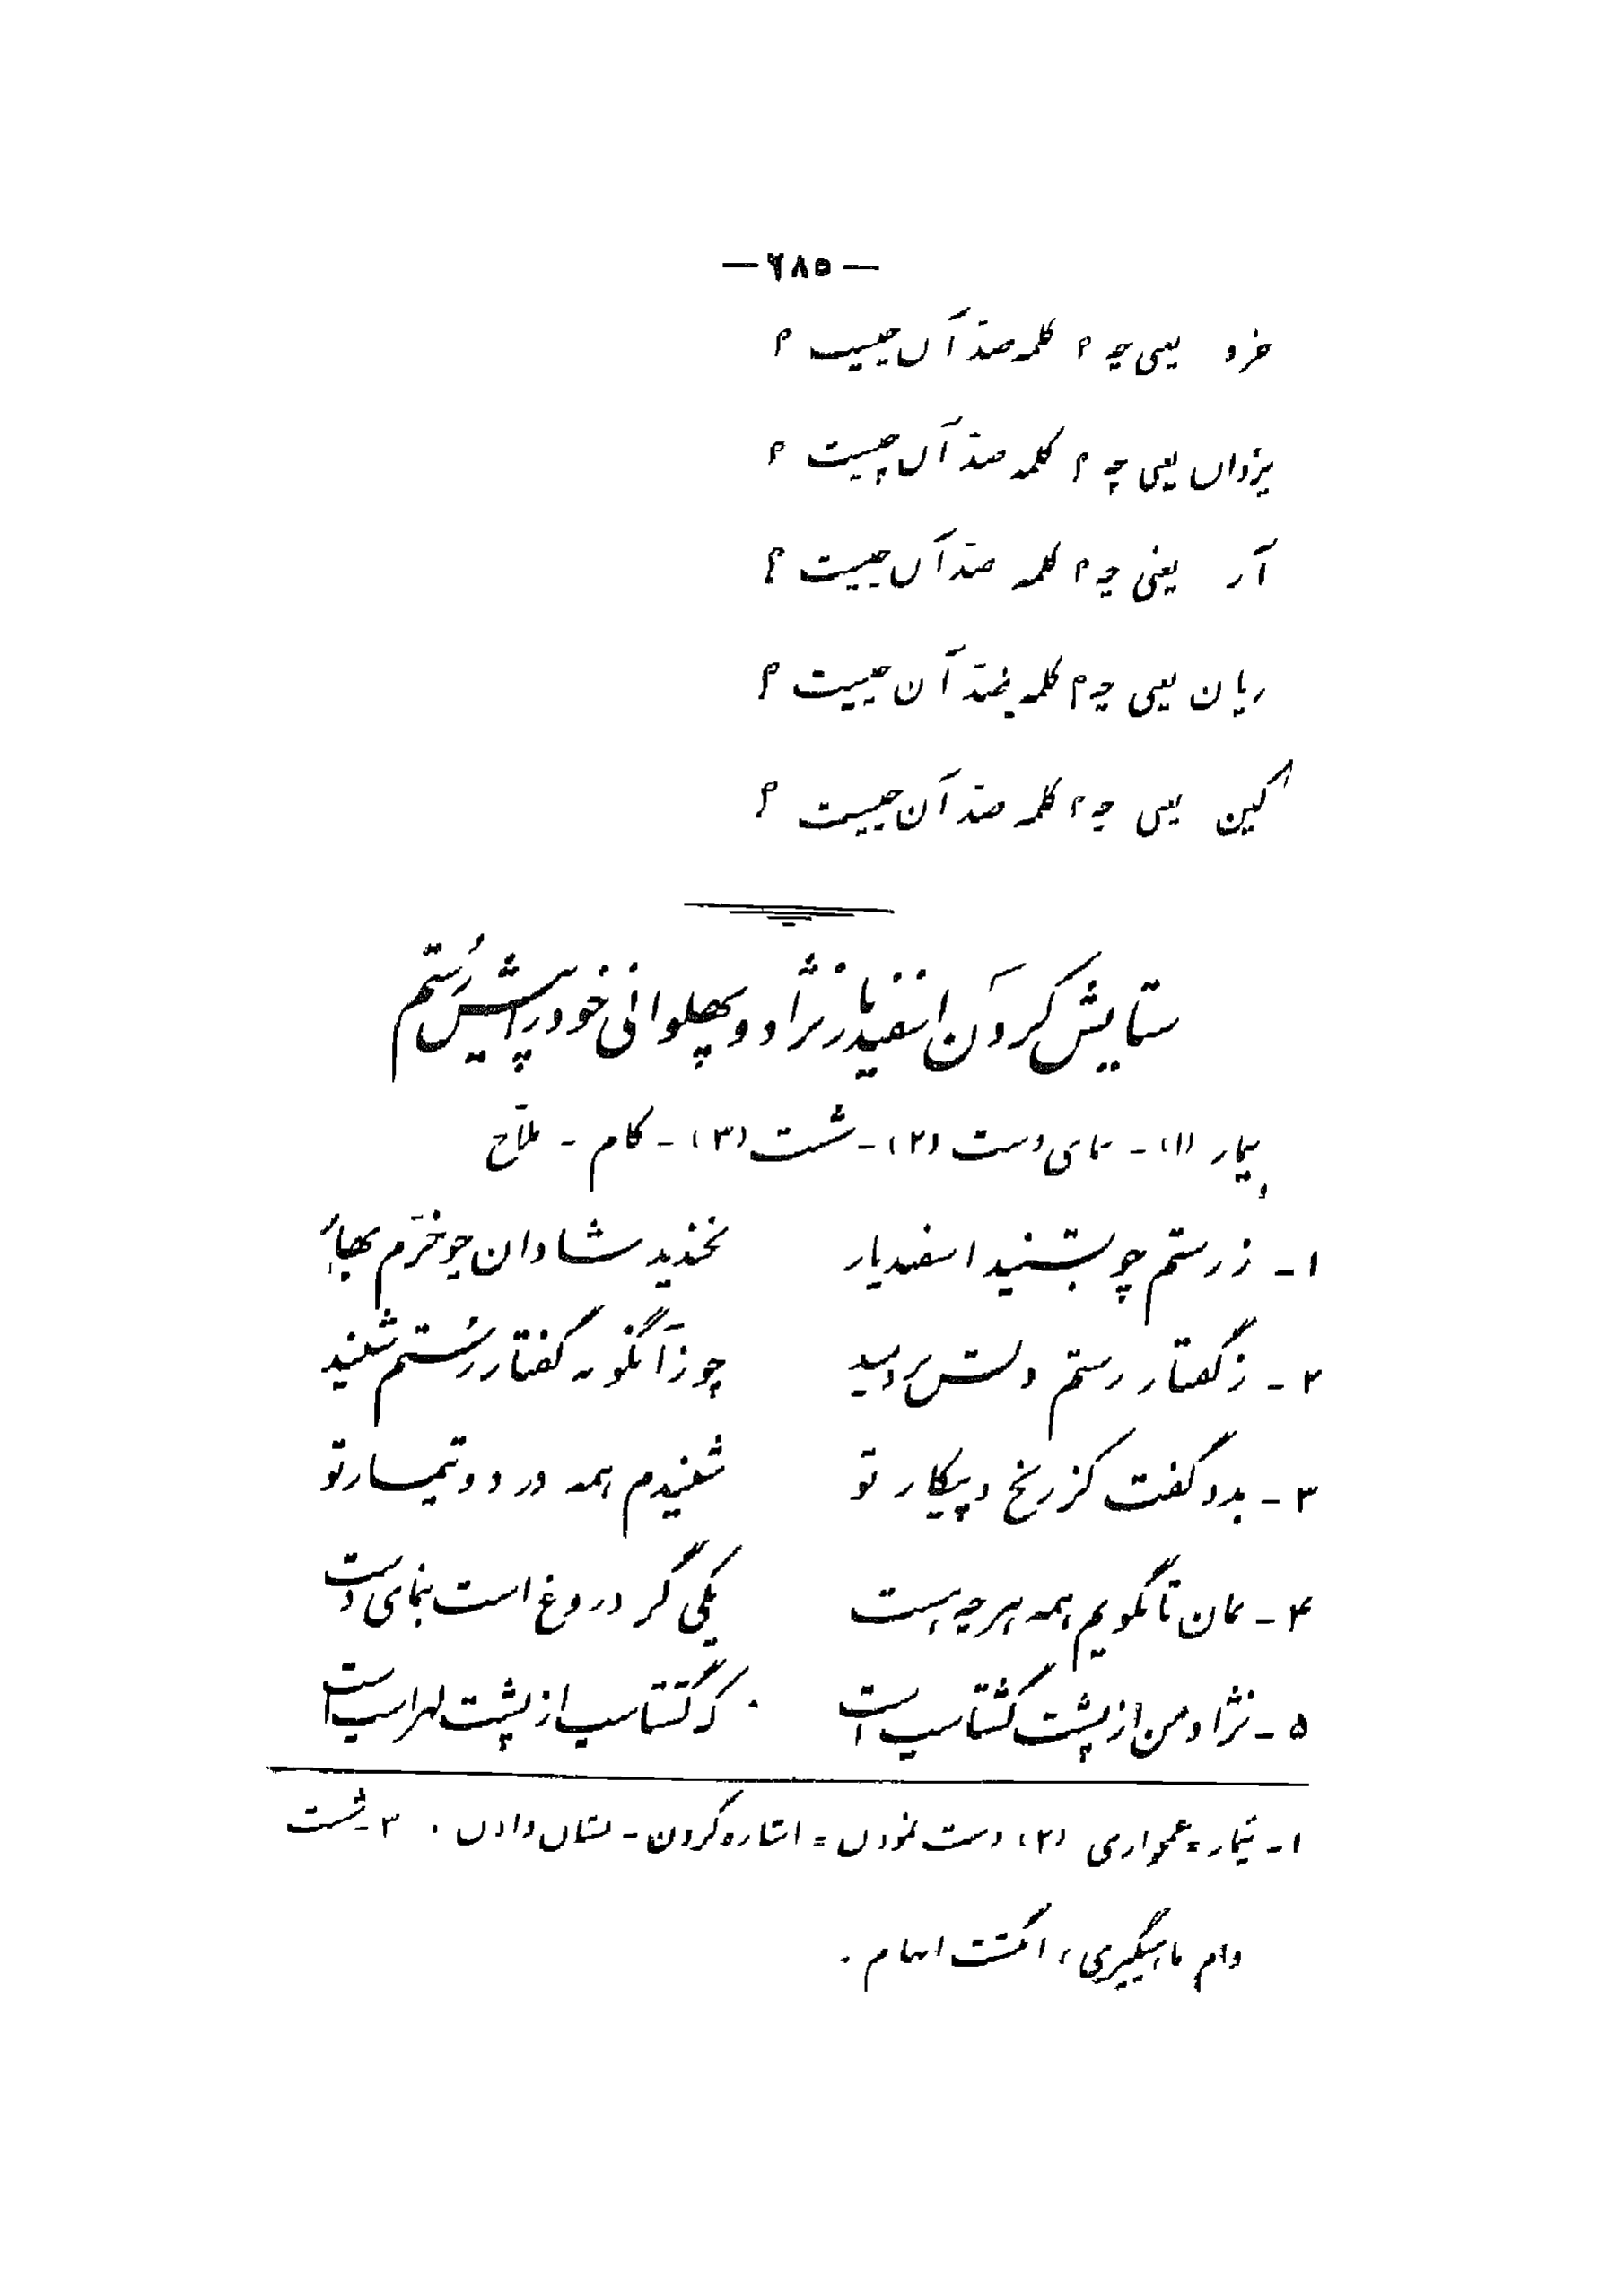 — ۲۸۵ —
خرد یعنی چه ؟ کلمه ضدّ آن چیست ؟
یزدان یعنی چه ؟ کلمه ضدّ آن چیست ؟
آز یعنی چه ؟ کلمه ضدّ آن چیست ؟
زیان یعنی چه ؟ کلمه ضدّ آن چیست ؟
کین یعنی چه ؟ کلمه ضدّ آن چیست ؟
ستایش کردن اسفندیار نژاد و پهلوانی خود را پیش رُستم
تیمار (۱) - نمای دست (۲) - شست (۳) - کام - ملّاح
۱ - ز رستم چو بشنید اسفندیار بخندید شادان چو خرّم بهار
۲ - ز گفتار رستم دلش بردمید چو زآنگونه گفتار رُستم شنید
۳ - بدو گفت کز رنج و پیکار تو شنیدم همه درد و تیمار تو
۴ - بمان تا بگویم همه هرچه هست یکی گر دروغ است بنمای دست
۵ - نژاد من از پشت گشتاسب است که گشتاسب از پشت لهراسب است
۱ - تیمار = غمخواری (۲) دست نمودن = اشاره کردن - نشان دادن . ۳ - شست
دام ماهیگیری ، انگشت ابهام .